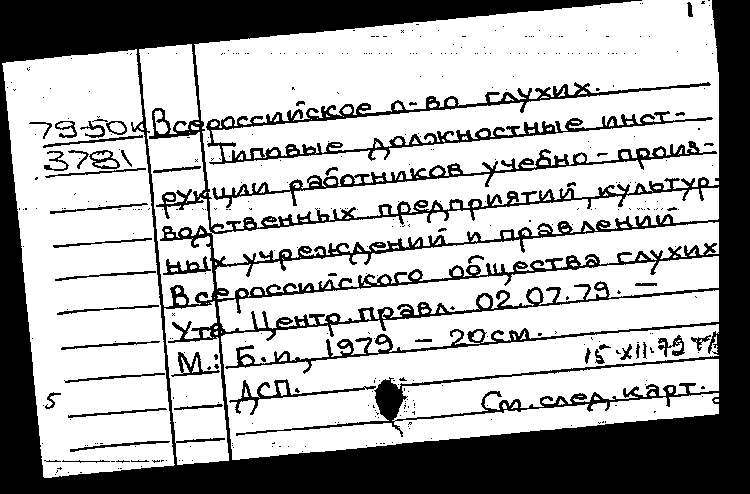 1
79-50к Всероссийское о-во глухих.
3781 Типовые должностные инст-
рукции работников учебно-произ-
водственных предприятий, культур-
ных учреждений и правлений
Всероссийского общества глухих
Утв. Центр. правл. 02.07.79. —
М.: Б.и., 1979. — 20см.
15.XII.79
ДСП.
5
См. след. карт.